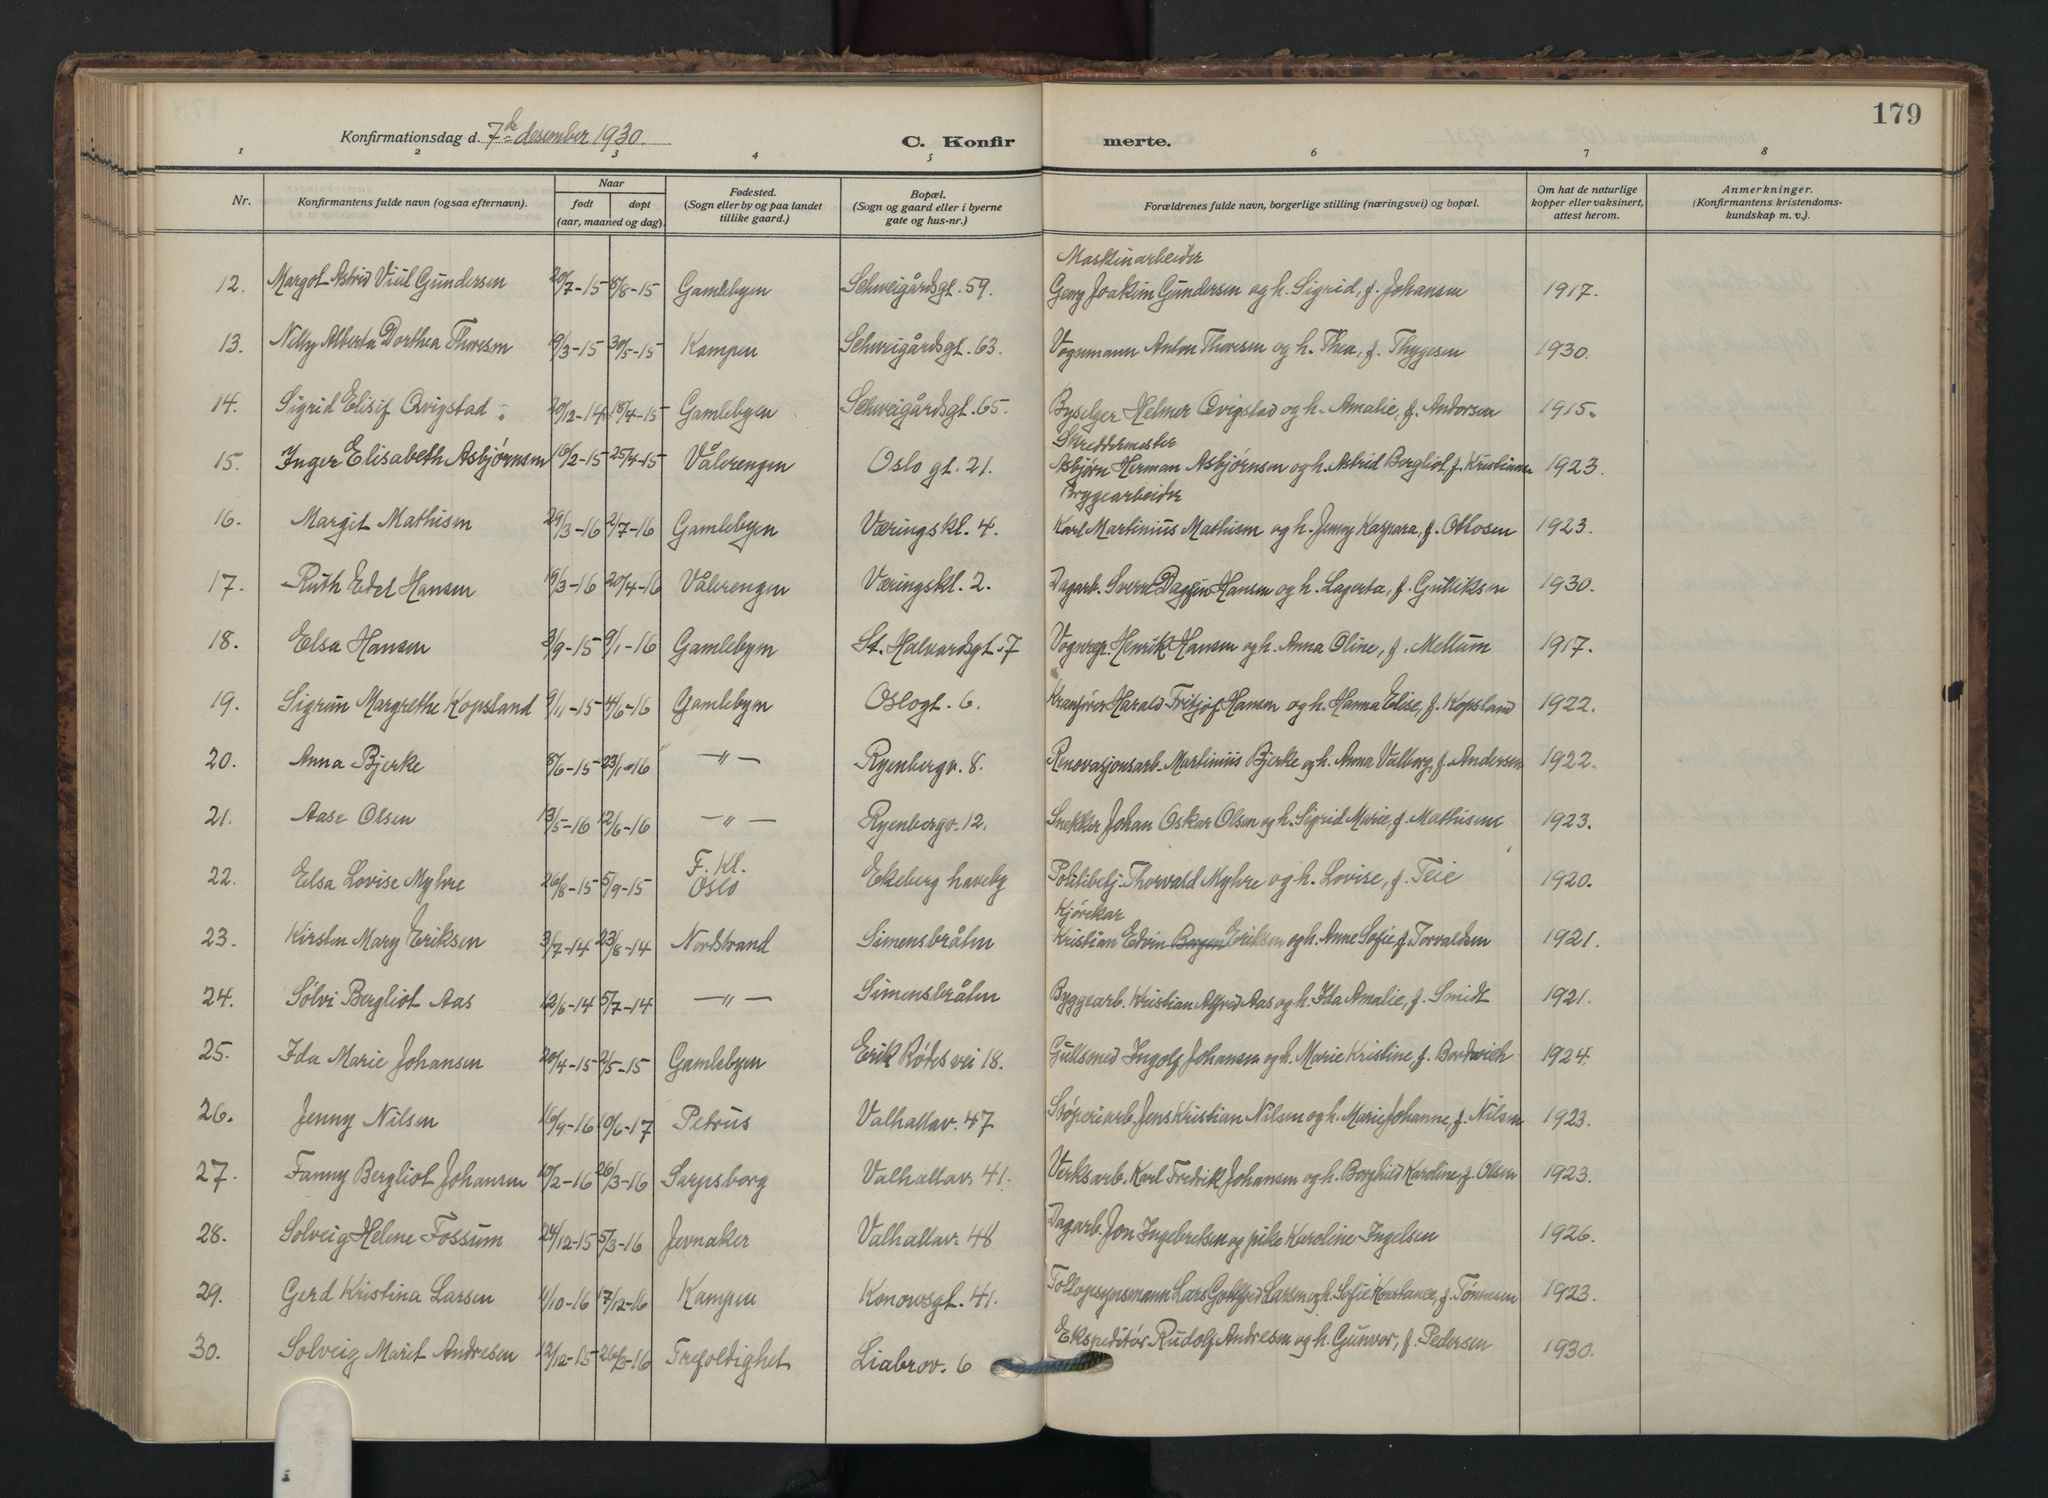 179
Konfirmationsdag d. 7de desember 1930. C. Konfirmerte.
1 2 3 4 5 6 7 8
Nr. Konfirmantens fulde navn (ogsaa efternavn). Naar født døpt (aar, maaned og dag). Fødested. (Sogn eller by og paa landet tillike gaard.) Bopæl. (Sogn og gaard eller i byerne gate og hus-nr.) Forældrenes fulde navn, borgerlige stilling (næringsvei) og bopæl. Om hat de naturlige kopper eller vaksinert, attest herom. Anmerkninger. (Konfirmantens kristendomskundskap m. v.).
Maskinarbeider
12. Margot Astrid Viul Gundersen 20/7-15 8/8-15 Gamlebyen Schweigårdsgt. 59. Georg Joakim Gundersen og h. Sigrid, f. Johansen 1917.
13. Nelly Alberta Dorthea Thoresen 19/3-15 30/5-15 Kampen Schweigårdsgt. 63. Vognmann Anton Thoresen og h. Thea, f. Thygesen 1930.
14. Sigrid Elisif Qvigstad 20/12-14 18/4-15 Gamlebyen Schweigårdsgt. 65. Byselger Helmer Qvigstad og h. Amalie, f. Andorsen 1915.
Skreddermester
15. Inger Elisabeth Asbjørnsen 16/2-15 25/4-15 Vålerengen Oslo gt. 21. Asbjørn Herman Asbjørnsen og h. Astrid Bergliot, f. 1923.
Bryggearbeider
16. Margit Mathisen 29/3-16 2/7-16 Gamlebyen Væringskl. 4. Karl Martinius Mathisen og h. Jenny Kaspara, f. Ottosen 1923.
17. Ruth Edel Hansen 19/3-16 20/4-16 Vålerengen Væringskl. 2. Dagarb. Sverre Dagfin Hansen og h. Lagerta, f. Gulliksen 1930.
18. Elsa Hansen 3/9-15 9/1-16 Gamlebyen St. Halvardsgt. 7 Vognrgr. Henrik Hansen og h. Anna Oline, f. Mellum 1917.
19. Sigrun Margrethe Kopsland 9/11-15 4/6-16 Gamlebyen Oslogt. 6. Kranfører Harald Fritjof Hansen og h. Hanna Elise, f. Kopsland 1922.
20. Anna Bjerke 8/6-15 23/1-16 —"— Ryenbergv. 8. Renovasjonsarb. Martinius Bjerke og h. Anna Valborg, f. Andersen 1922.
21. Aase Olsen 13/5-16 12/6-16 —"— Ryenbergv. 12. Snekker Johan Oskar Olsen og h. Sigrid Marie, f. Mathisene 1923.
22. Elsa Lovise Myhre 26/8-15 5/9-15 F. Kl. Oslo Ekeberg haveby Politibetj. Thorvald Myhre og h. Lovise, f. Teie 1920.
Kjørekar
23. Kirsten Mary Eriksen 3/7-14 23/8-14 Nordstrand Simensbråten Kristian Edvin Eriksen og h. Anne Sofie, f. Torvaldsen 1921.
24. Sølvi Bergliot Aas 12/6-14 5/7-14 —"— Simensbråten Byggearb. Kristian Alfred Aas og h. Ida Amalie, f. Smidt 1921.
25. Ida Marie Johansen 20/4-15 2/5-15 Gamlebyen Erik Rødes vei 18. Gullsmed Ingolf Johansen og h. Marie Kristine, f. Bordewich 1924.
26. Jenny Nilsen 16/9-16 10/6-17 Petrus Valhallav. 47 Støperiarb. Jens Kristian Nilsen og h. Marie Johanne, f. Nilsen 1923.
27. Fanny Bergliot Johansen 12/2-16 26/3-16 Sarpsborg Valhallav. 41. Verksarb. Karl Fredrik Johansen og h. Borghild Karoline, f. Olsen 1923.
28. Solveig Helene Fossum 24/12-15 5/3-16 Jevnaker Valhallav. 48 Dagarb. Jon Ingebretsen og pike Karoline Ingelsen 1926.
29. Gerd Kristina Larsen 4/10-16 17/12-16 Kampen Konowsgt. 41. Tollopsynsmann Lars Gottfred Larsen og h. Sofie Konstance, f. Tønnesen 1923.
30. Solveig Marit Andresen 12/12-15 26/3-16 Trefoldighet Liabrov. 6 Ekspeditør Rudolf Andresen og h. Gunvor, f. Pedersen 1930.